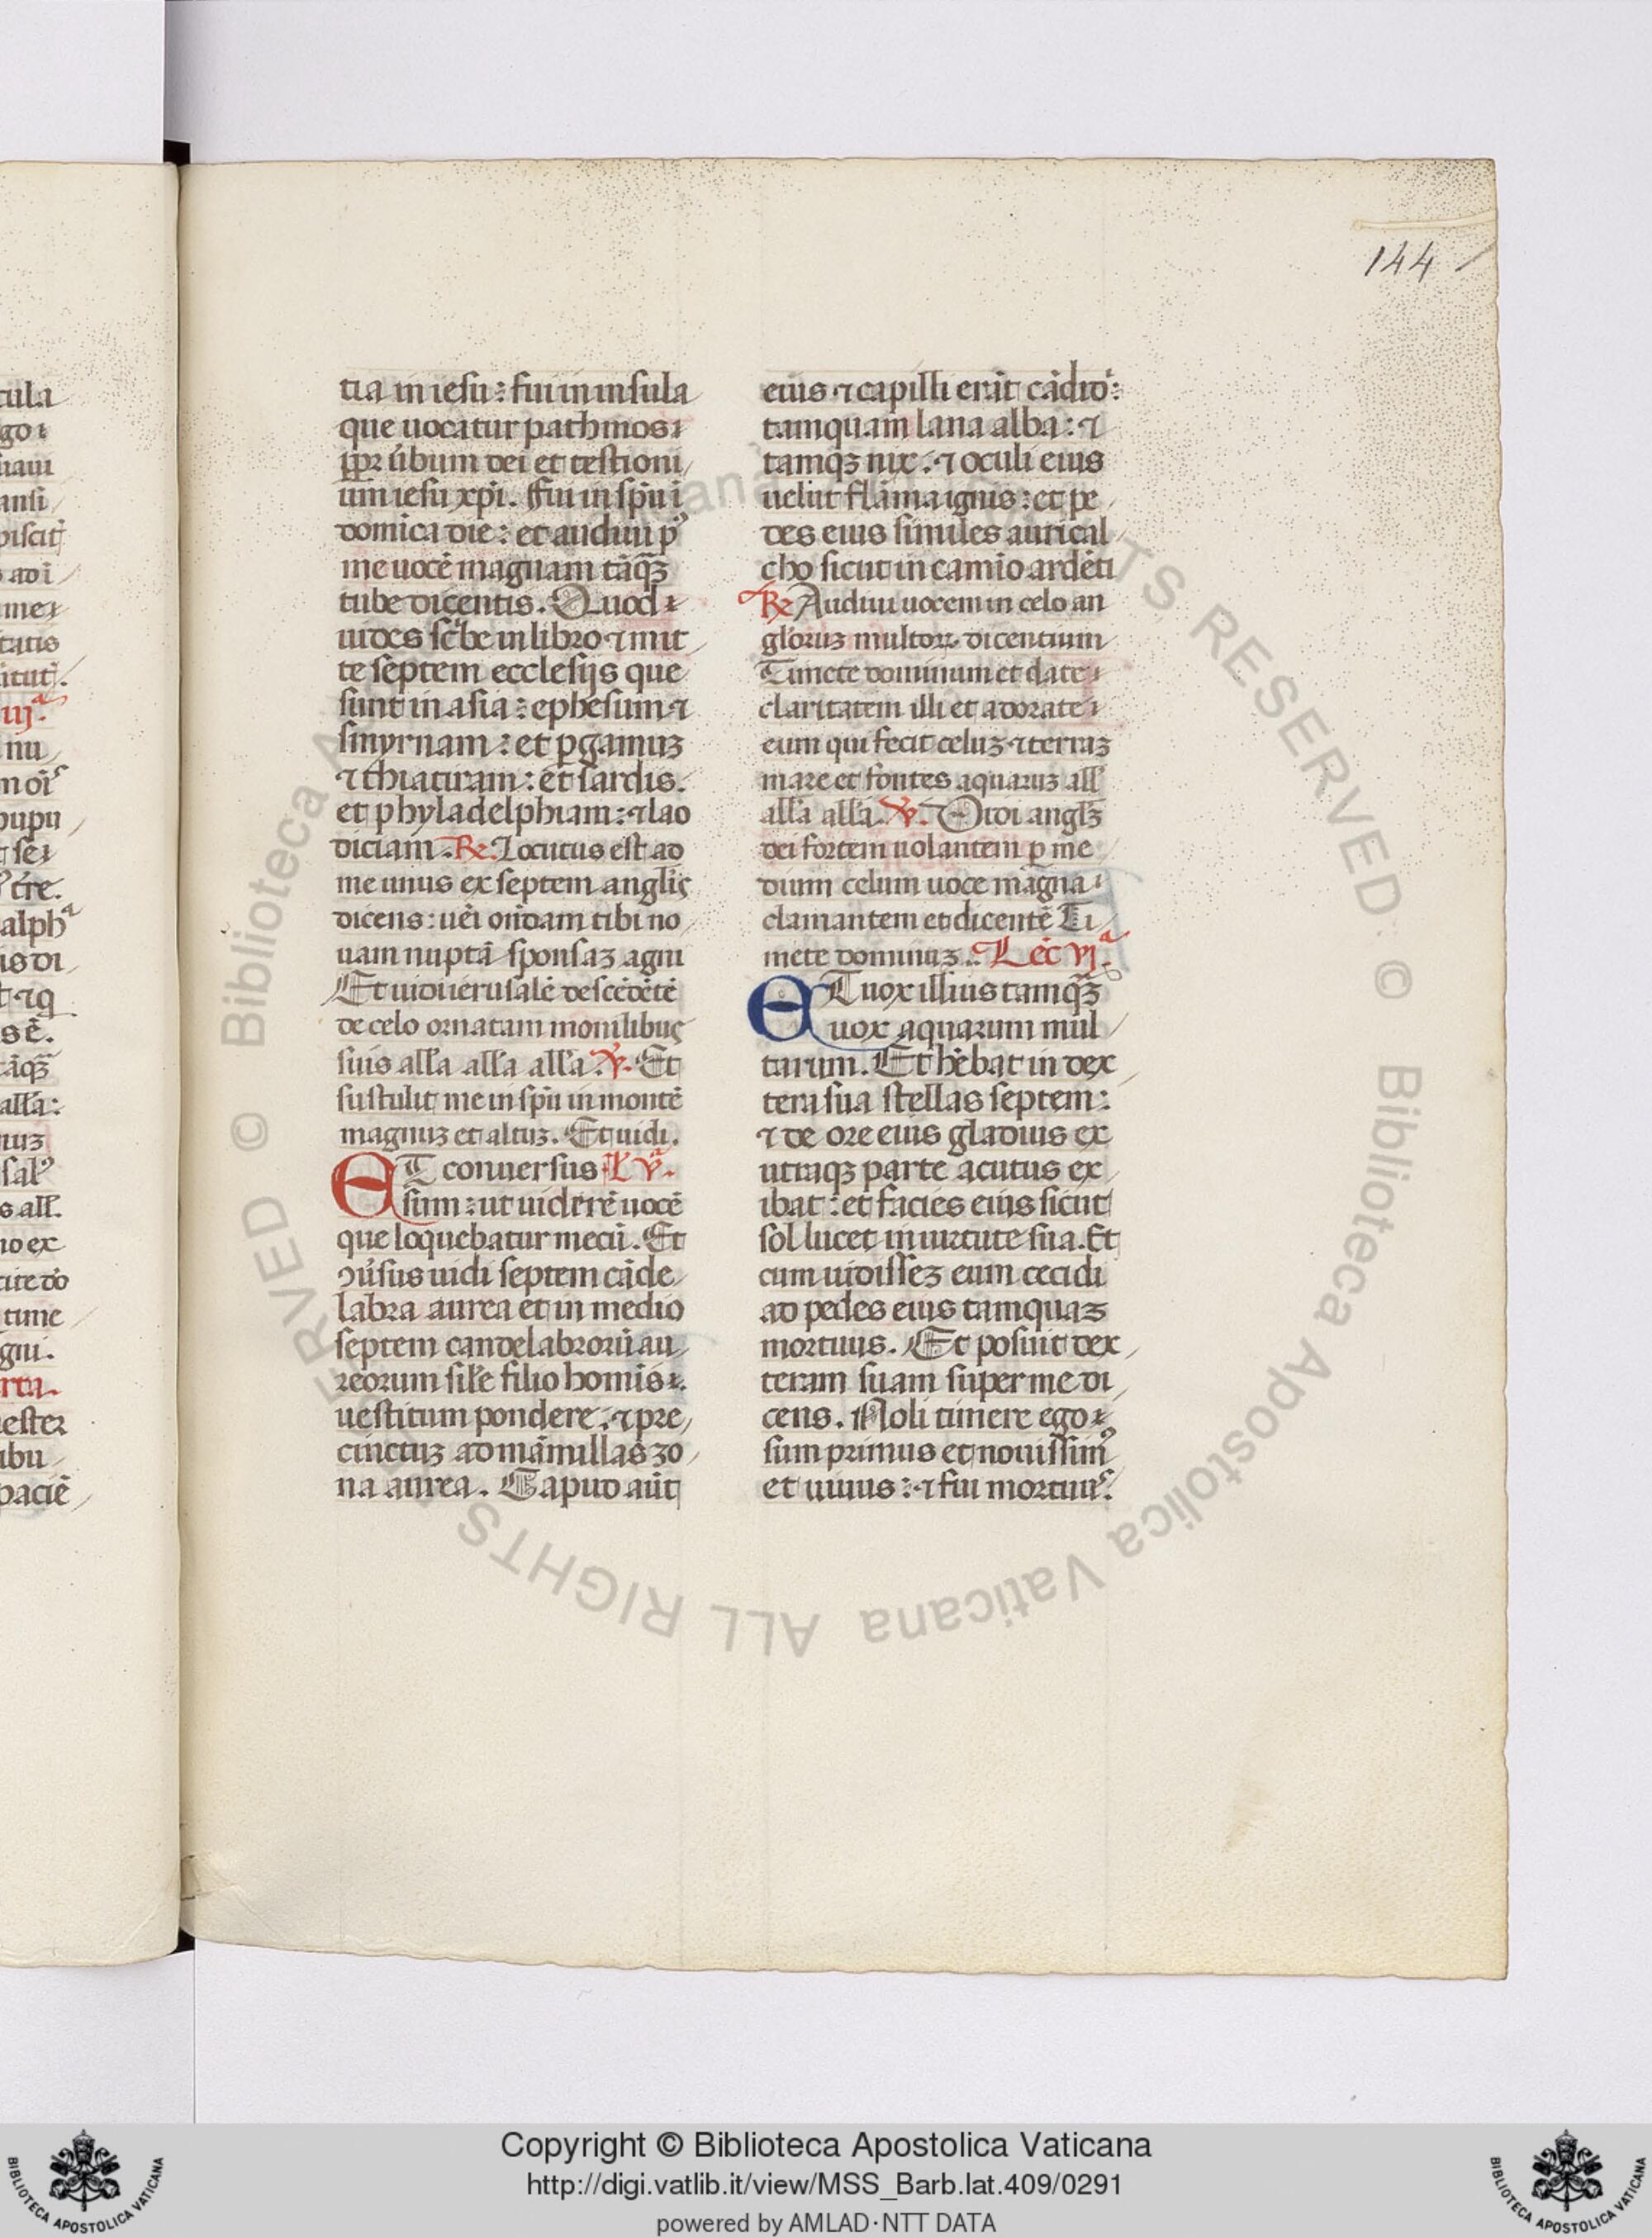 144
tula
go
alph
is di
alla:
no ex
time
gni.
rta.
ester
ibu
paciē
tia in iesu : fui in insula
que uocatur pathmos
ppr̄ ūbum dei et testioni
um iesu xp̄i. Fui in sp̄u ī
domica die : et audiui p⁹
me uocē magnam tāqȝ
tube dicentis. Quod
uides sc̄be in libro ⁊ mit
te septem ecclesijs que
sunt in asia : ephesum ⁊
smyrnam : et pgamuȝ
⁊ thiatiram : et sardis.
et phyladelphiam : ⁊ lao
diciam. R. Locutus est ad
me unus ex septem anglis
dicens : uēi ondam tibi no
uam nuptā sponsaȝ agni
Et uidi ierusalē descēdētē
de celo ornatam monilibus
suis alla alla alla. V. Et
sustulit me in sp̄u in montē
magnuȝ et altuȝ. Et uidi.
ET conuersus L v.ª
sum : ut uiderē uocē
que loquebatur mecū. Et
ↄūsus uidi septem cāde
labra aurea et in medio
septem candelabrorū au
reorum sil̄e filio homīs
uestitum pondere : ⁊ pre
cinctuȝ ad māmillas zo
na aurea. Caput aūt
eius ⁊ capilli erāt cādid
tamquam lana alba : ⁊
tamqȝ nix : ⁊ oculi eius
uelut flāma ignis : et pe
des eius similes aurical
cho sicut in camio ardēti
R. Audiui uocem in celo an
gloruȝ multorꝝ dicentium
Timete dominum et date
claritatem illi et adorate
eum qui fecit celuȝ ⁊ terraȝ
mare et fontes aquaruȝ all
alla alla. V. Uidi anglȝ
dei fortem uolantem p me
dium celum uoce magna
clamantem et dicentē Ti
mete dominuȝ. Lec̄ vj.ª
ET uox illius tamqȝ
uox aquarum mul
tarum. Et hēbat in dex
tera sua stellas septem :
⁊ de ore eius gladius ex
utraqȝ parte acutus ex
ibat : et facies eius sicut
sol lucet in uirtute sua. Et
cum uidisseȝ eum cecidi
ad pedes eius tamquaȝ
mortuus. Et posuit dex
teram suam super me di
cens. Noli timere ego
sum primus et nouissim⁹
et uiuus : ⁊ fui mortuus.
© Biblioteca Apostolica Vaticana ALL RIGHTS RESERVED
Copyright © Biblioteca Apostolica Vaticana
http://digi.vatlib.it/view/MSS_Barb.lat.409/0291
powered by AMLAD·NTT DATA
BIBLIOTECA APOSTOLICA VATICANA
BIBLIOTECA APOSTOLICA VATICANA